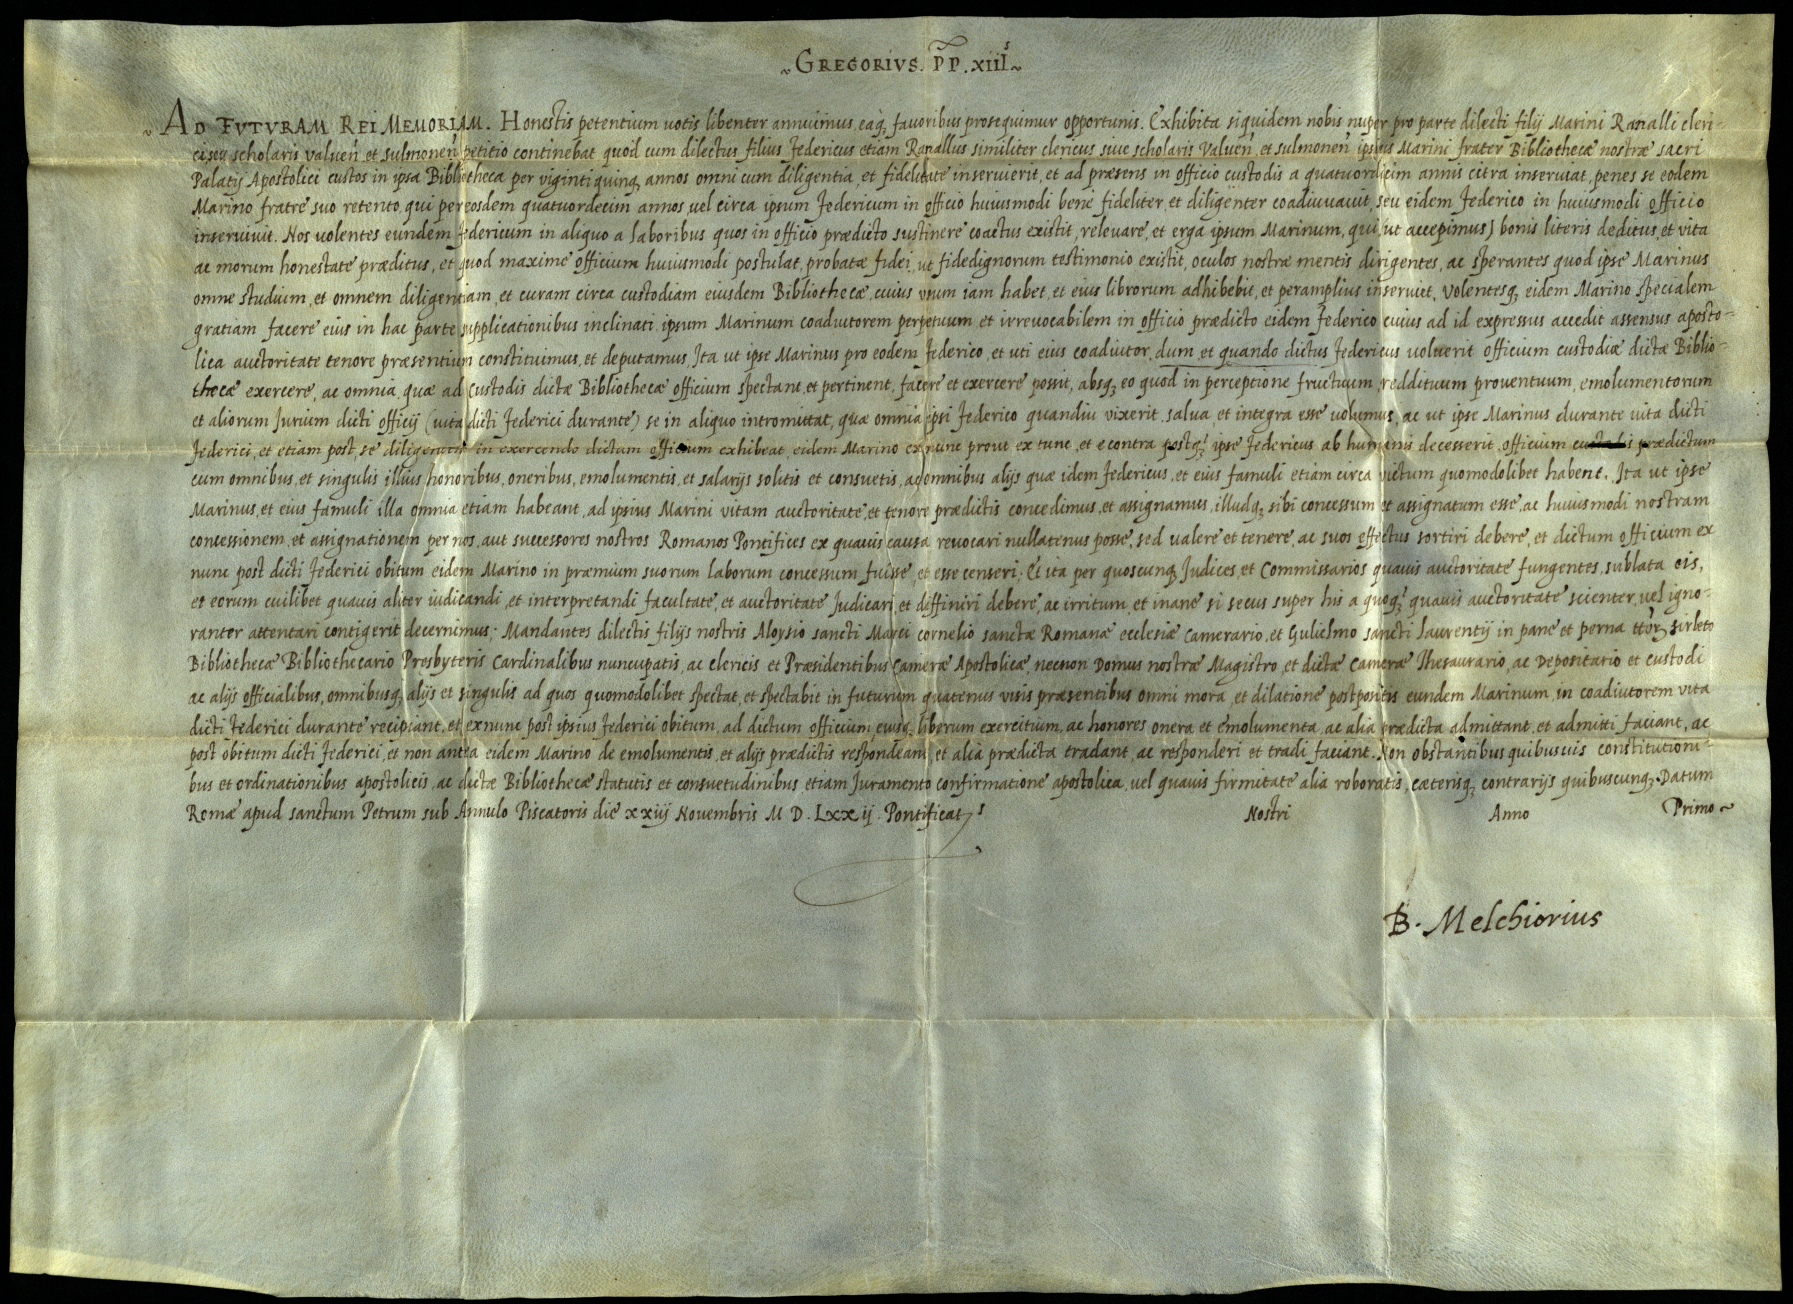 ~ GREGORIVS. PP. XIII^s ~
~ AD FVTVRAM REI MEMORIAM. Honestis petentium uotis libenter annuimus, eaq₃ fauoribus prosequimur opportunis. Exhibita siquidem nobis nuper pro parte dilecti filij Marini Ranalli cleri-
ci seu scholaris valuen̄ et sulmonen̄ petitio continebat quod cum dilectus filius Federicus etiam Ranallus similiter clericus siue scholaris Valuen̄ et sulmonen̄ ipsius Marini frater Bibliothecæ nostræ sacri
Palatij Apostolici custos in ipsa Bibliotheca per vigintiquinq₃ annos omni cum diligentia, et fidelitate inseruierit, et ad præsens in officio custodis a quatuordicim annis citra inseruiat, penes se eodem
Marino fratre suo retento, qui per eosdem quatuordecim annos, uel circa ipsum Federicum in officio huiusmodi bene fideliter, et diligenter coadiuuauit, seu eidem Federico in huiusmodi officio
inseruiuit. Nos uolentes eundem Federicum in aliquo a laboribus quos in officio prædicto sustinere coactus existit, releuare, et erga ipsum Marinum, qui (ut accepimus) bonis literis deditus, et vita
ac morum honestate præditus, et quod maxime officium huiusmodi postulat, probatæ fidei, ut fidedignorum testimonio existit, oculos nostræ mentis dirigentes, ac sperantes quod ipse Marinus
omne studium, et omnem diligentiam, et curam circa custodiam eiusdem Bibliothecæ, cuius usum iam habet, et eius librorum adhibebit, et peramplius inseruiet, Volentesq₃ eidem Marino specialem
gratiam facere eius in hac parte supplicationibus inclinati, ipsum Marinum coadiutorem perpetuum, et irreuocabilem in officio prædicto eidem Federico cuius ad id expressus accedit assensus aposto-
lica auctoritate tenore præsentium constituimus, et deputamus, Ita ut ipse Marinus pro eodem Federico, et uti eius coadiutor, dum, et quando dictus Federicus uoluerit officium custodiæ dictæ Biblio-
thecæ exercere, ac omnia, quæ ad custodis dictæ Bibliothecæ officium spectant, et pertinent, facere et exercere possit, absq₃ eo quod in perceptione fructuum, reddituum prouentuum, emolumentorum
et aliorum Jurium dicti officij (uita dicti Federici durante) se in aliquo intromittat, quæ omnia ipsi Federico quandiu vixerit, salua, et integra esse uolumus, ac ut ipse Marinus durante uita dicti
Federici, et etiam post, se diligentem in exercendo dictum officium exhibeat, eidem Marino ex nunc prout ex tunc, et e contra postq̄₃ ipse Federicus ab humanis decesserit, officium custodis prædictum
cum omnibus, et singulis illius honoribus, oneribus, emolumentis, et salarijs solitis et consuetis, ac omnibus alijs quæ idem Federicus, et eius famuli etiam circa victum quomodolibet habent, Ita ut ipse
Marinus, et eius famuli illa omnia etiam habeant, ad ipsius Marini vitam auctoritate, et tenore prædictis concedimus, et assignamus, illudq₃ sibi concessum et assignatum esse, ac huiusmodi nostram
concessionem, et assignationem per nos, aut successores nostros Romanos Pontifices ex quauis causa reuocari nullatenus posse, sed valere et tenere, ac suos effectus sortiri debere, et dictum officium ex
nunc post dicti Federici obitum eidem Marino in præmium suorum laborum concessum fuisse, et esse censeri; Et ita per quoscunq₃ Judices, et Commissarios quauis auctoritate fungentes, sublata eis,
et eorum cuilibet quauis aliter iudicandi, et interpretandi facultate, et auctoritate Judicari, et diffiniri debere, ac irritum, et inane si secus super his a quoq̄₃ quauis auctoritate scienter, uel igno-
ranter attentari contigerit decernimus; Mandantes dilectis filijs nostris Aloysio sancti Marci cornelio sanctæ Romanæ ecclesiæ Camerario, et Gulielmo sancti Laurentij in pane et perna tt̄or₃ sirleto
Bibliothecæ Bibliothecario Presbyteris Cardinalibus nuncupatis, ac clericis et Præsidentibus Cameræ Apostolicæ, necnon Domus nostræ Magistro, et dictæ Cameræ Thesaurario, ac Depositario et custodi
ac alijs officialibus, omnibusq₃ alijs et singulis ad quos quomodolibet spectat, et spectabit in futurum quatenus visis præsentibus omni mora, et dilatione postpositis eundem Marinum, in coadiutorem vita
dicti Federici durante recipiant, et ex nunc post ipsius Federici obitum, ad dictum officium, eiusq₃ liberum exercitium, ac honores onera, et emolumenta, ac alia prædicta admittant, et admitti faciant, ac
post obitum dicti Federici, et non antea eidem Marino de emolumentis, et alijs prædictis respondeant, et alia prædicta tradant, ac responderi et tradi faciant. Non obstantibus quibusuis constitutioni-
bus et ordinationibus apostolicis, ac dictæ Bibliothecæ statutis et consuetudinibus etiam Juramento confirmatione apostolica, uel quauis firmitate alia roboratis, cæterisq₃ contrarijs quibuscunq₃. Datum
Romæ apud sanctum Petrum sub Annulo Piscatoris die xxiij Novembris M D. Lxxij. Pontificat^s Nostri Anno Primo ~
B. Melchiorius